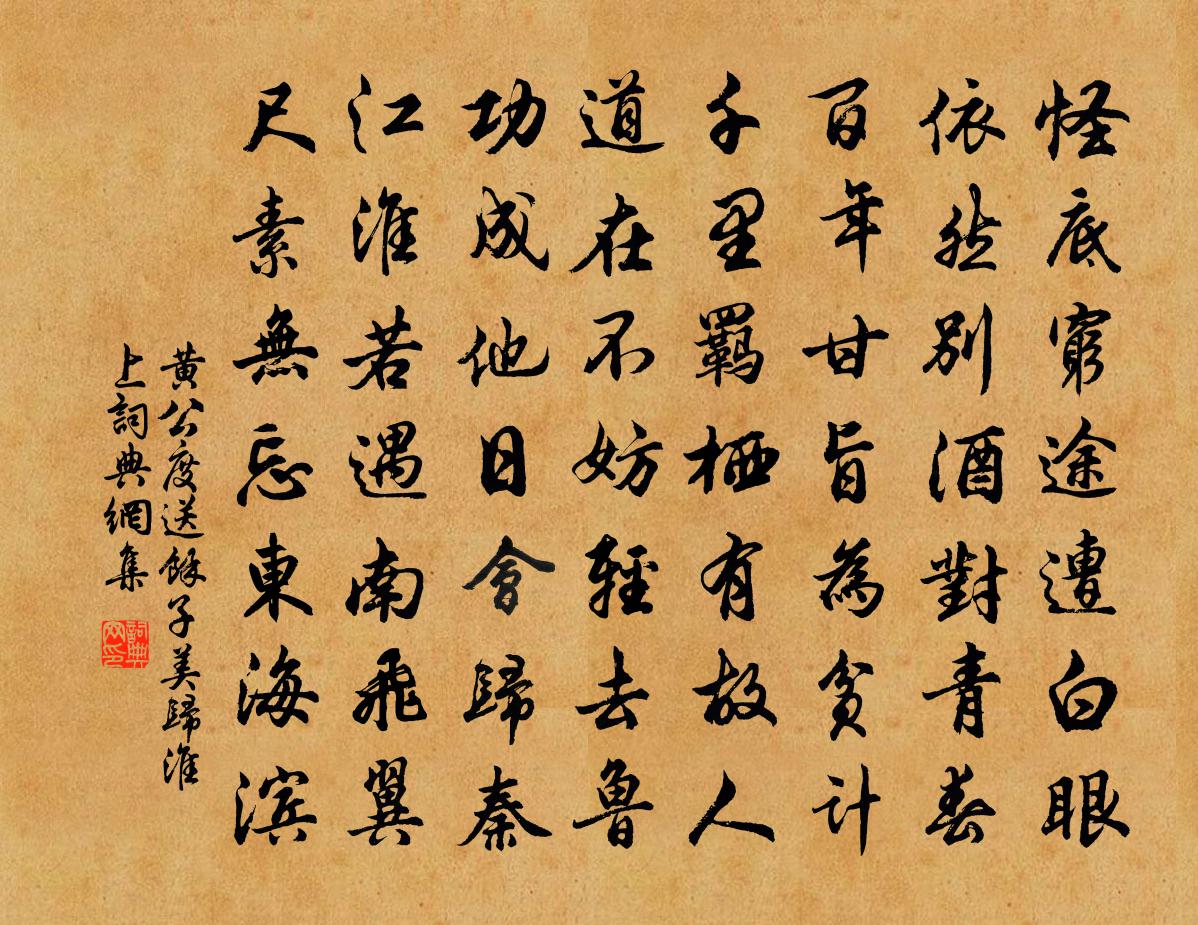 怪底窮途遭白眼
依然別酒對青春
百年甘旨為貧計
千里羈栖有故人
道在不妨輕去魯
功成他日會歸秦
江淮若遇南飛翼
尺素無忘東海濱
黃公度送餘子美歸淮
上詞典網集
詞典網印